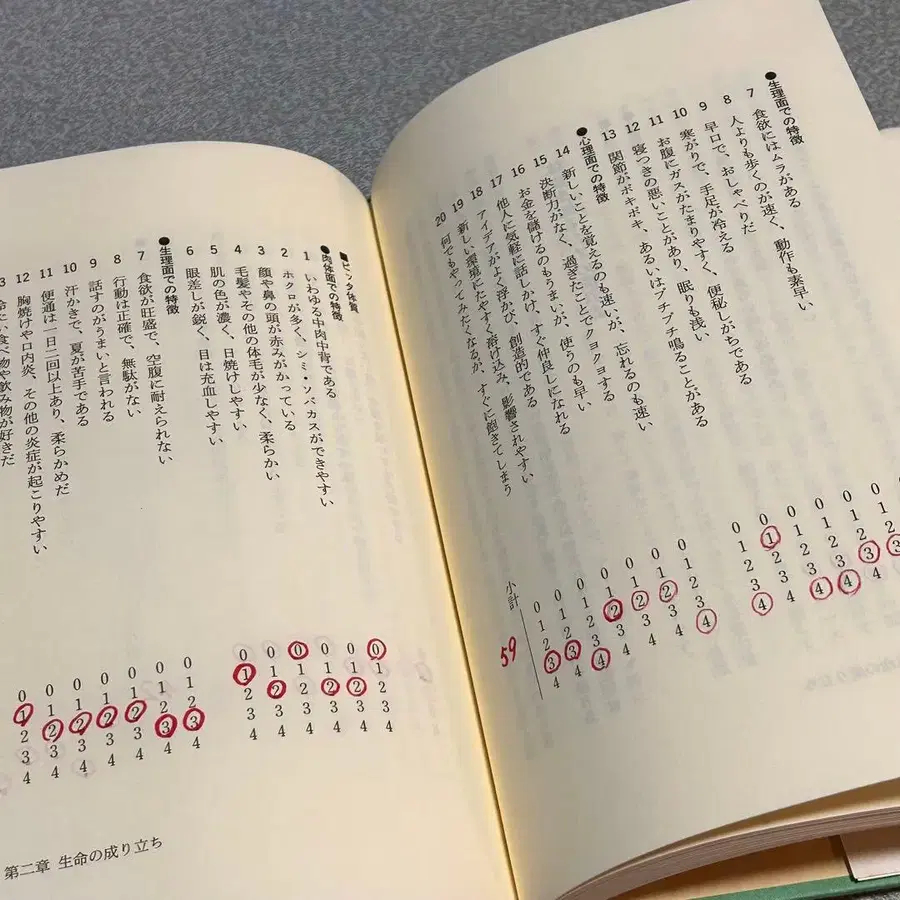 ●生理面での特徴
7 食欲にはムラがある
8 人よりも歩くのが速く、動作も素早い 0 1 2 3 4
9 早口で、おしゃべりだ 0 1 2 3 4
10 寒がりで、手足が冷える 0 1 2 3 4
11 お腹にガスがたまりやすく、便秘しがちである 0 1 2 3 4
12 寝つきの悪いことがあり、眠りも浅い 0 1 2 3 4
13 関節がポキポキ、あるいはプチプチ鳴ることがある 0 1 2 3 4
●心理面での特徴
14 新しいことを覚えるのも速いが、忘れるのも速い 0 1 2 3 4
15 決断力がなく、過ぎたことでクヨクヨする 0 1 2 3 4
16 お金を儲けるのもうまいが、使うのも早い 0 1 2 3 4
17 他人に気軽に話しかけ、すぐ仲良しになれる 0 1 2 3 4
18 アイデアがよく浮かび、創造的である 0 1 2 3 4
19 新しい環境にたやすく溶け込み、影響されやすい 0 1 2 3 4
20 何でもやってみたくなるが、すぐに飽きてしまう 0 1 2 3 4
小計 59
■ピッタ体質
●肉体面での特徴
1 いわゆる中肉中背である 0 1 2 3 4
2 ホクロが多く、シミ・ソバカスができやすい 0 1 2 3 4
3 顔や鼻の頭が赤みがかっている 0 1 2 3 4
4 毛髪やその他の体毛が少なく、柔らかい 0 1 2 3 4
5 肌の色が濃く、日焼けしやすい 0 1 2 3 4
6 眼差しが鋭く、目は充血しやすい 0 1 2 3 4
●生理面での特徴
7 食欲が旺盛で、空腹に耐えられない 0 1 2 3 4
8 行動は正確で、無駄がない 0 1 2 3 4
9 話すのがうまいと言われる 0 1 2 3 4
10 汗かきで、夏が苦手である 0 1 2 3 4
11 便通は一日二回以上あり、柔らかめだ 0 1 2 3 4
12 胸焼けや口内炎、その他の炎症が起こりやすい 0 1 2 3 4
3 冷たい食べ物や飲み物が好きだ 0 1 2 3 4
第二章 生命の成り立ち